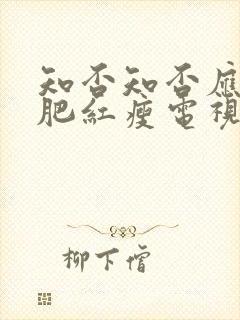 知否知否應
肥紅瘦電視
柳下僧